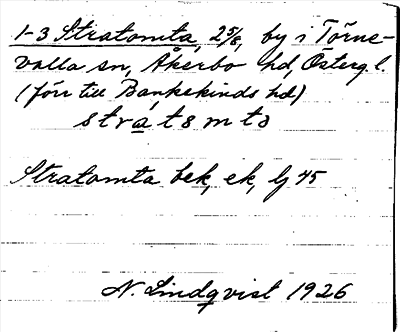 1-3 Stratomta, 25/8, by i Törne-
valla sn, Åkerbo hd, Österg. l.
(förr till Bankekinds hd)
stråtomta
Stratomta bek, ek, lj 45
N. Lindqvist 1926